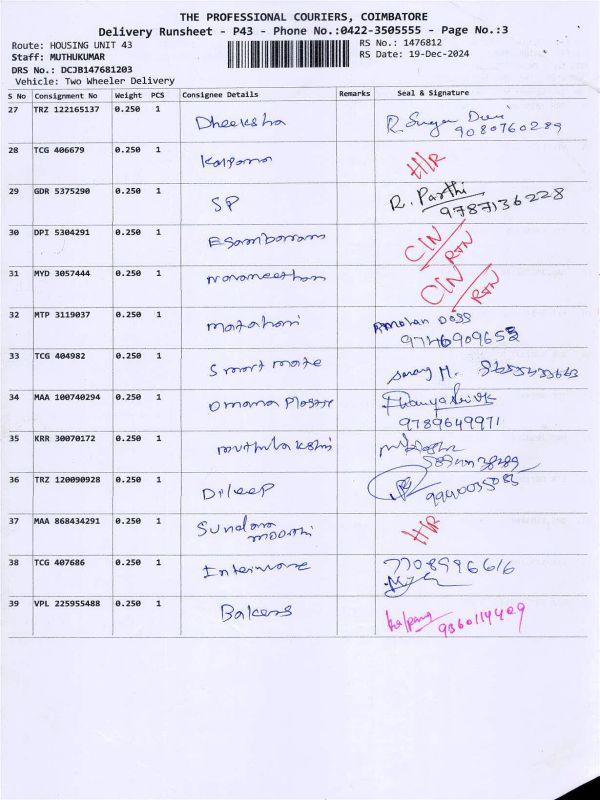 THE PROFESSIONAL COURIERS, COIMBATORE
Delivery Runsheet - P43 - Phone No.:0422-3505555 - Page No.:3
Route: HOUSING UNIT 43 RS No.: 1476812
Staff: MUTHUKUMAR RS Date: 19-Dec-2024
DRS No.: DCJB147681203
Vehicle: Two Wheeler Delivery
S No Consignment No Weight PCS Consignee Details Remarks Seal & Signature
27 TRZ 122165137 0.250 1 Dheeksha R. Sugan Devi
9080760289
28 TCG 406679 0.250 1 Kalpana H/R
29 GDR 5375290 0.250 1 SP R. Parthi
9787136228
30 DPI 5304291 0.250 1 Esambaram C/N
RTN
31 MYD 3057444 0.250 1 Navaneethan C/N
RTN
32 MTP 3119037 0.250 1 Matahari Amolan Doss
33 TCG 404982 0.250 1 Smart mate Sarang M.
34 MAA 100740294 0.250 1 Omana Plaste
9789649971
35 KRR 30070172 0.250 1 muthulakshmi
36 TRZ 120090928 0.250 1 Dileep
37 MAA 868434291 0.250 1 Sundara H/R
moorthi
38 TCG 407686 0.250 1 7708996616
39 VPL 225955488 0.250 1 Bakers kalpana
9360114409